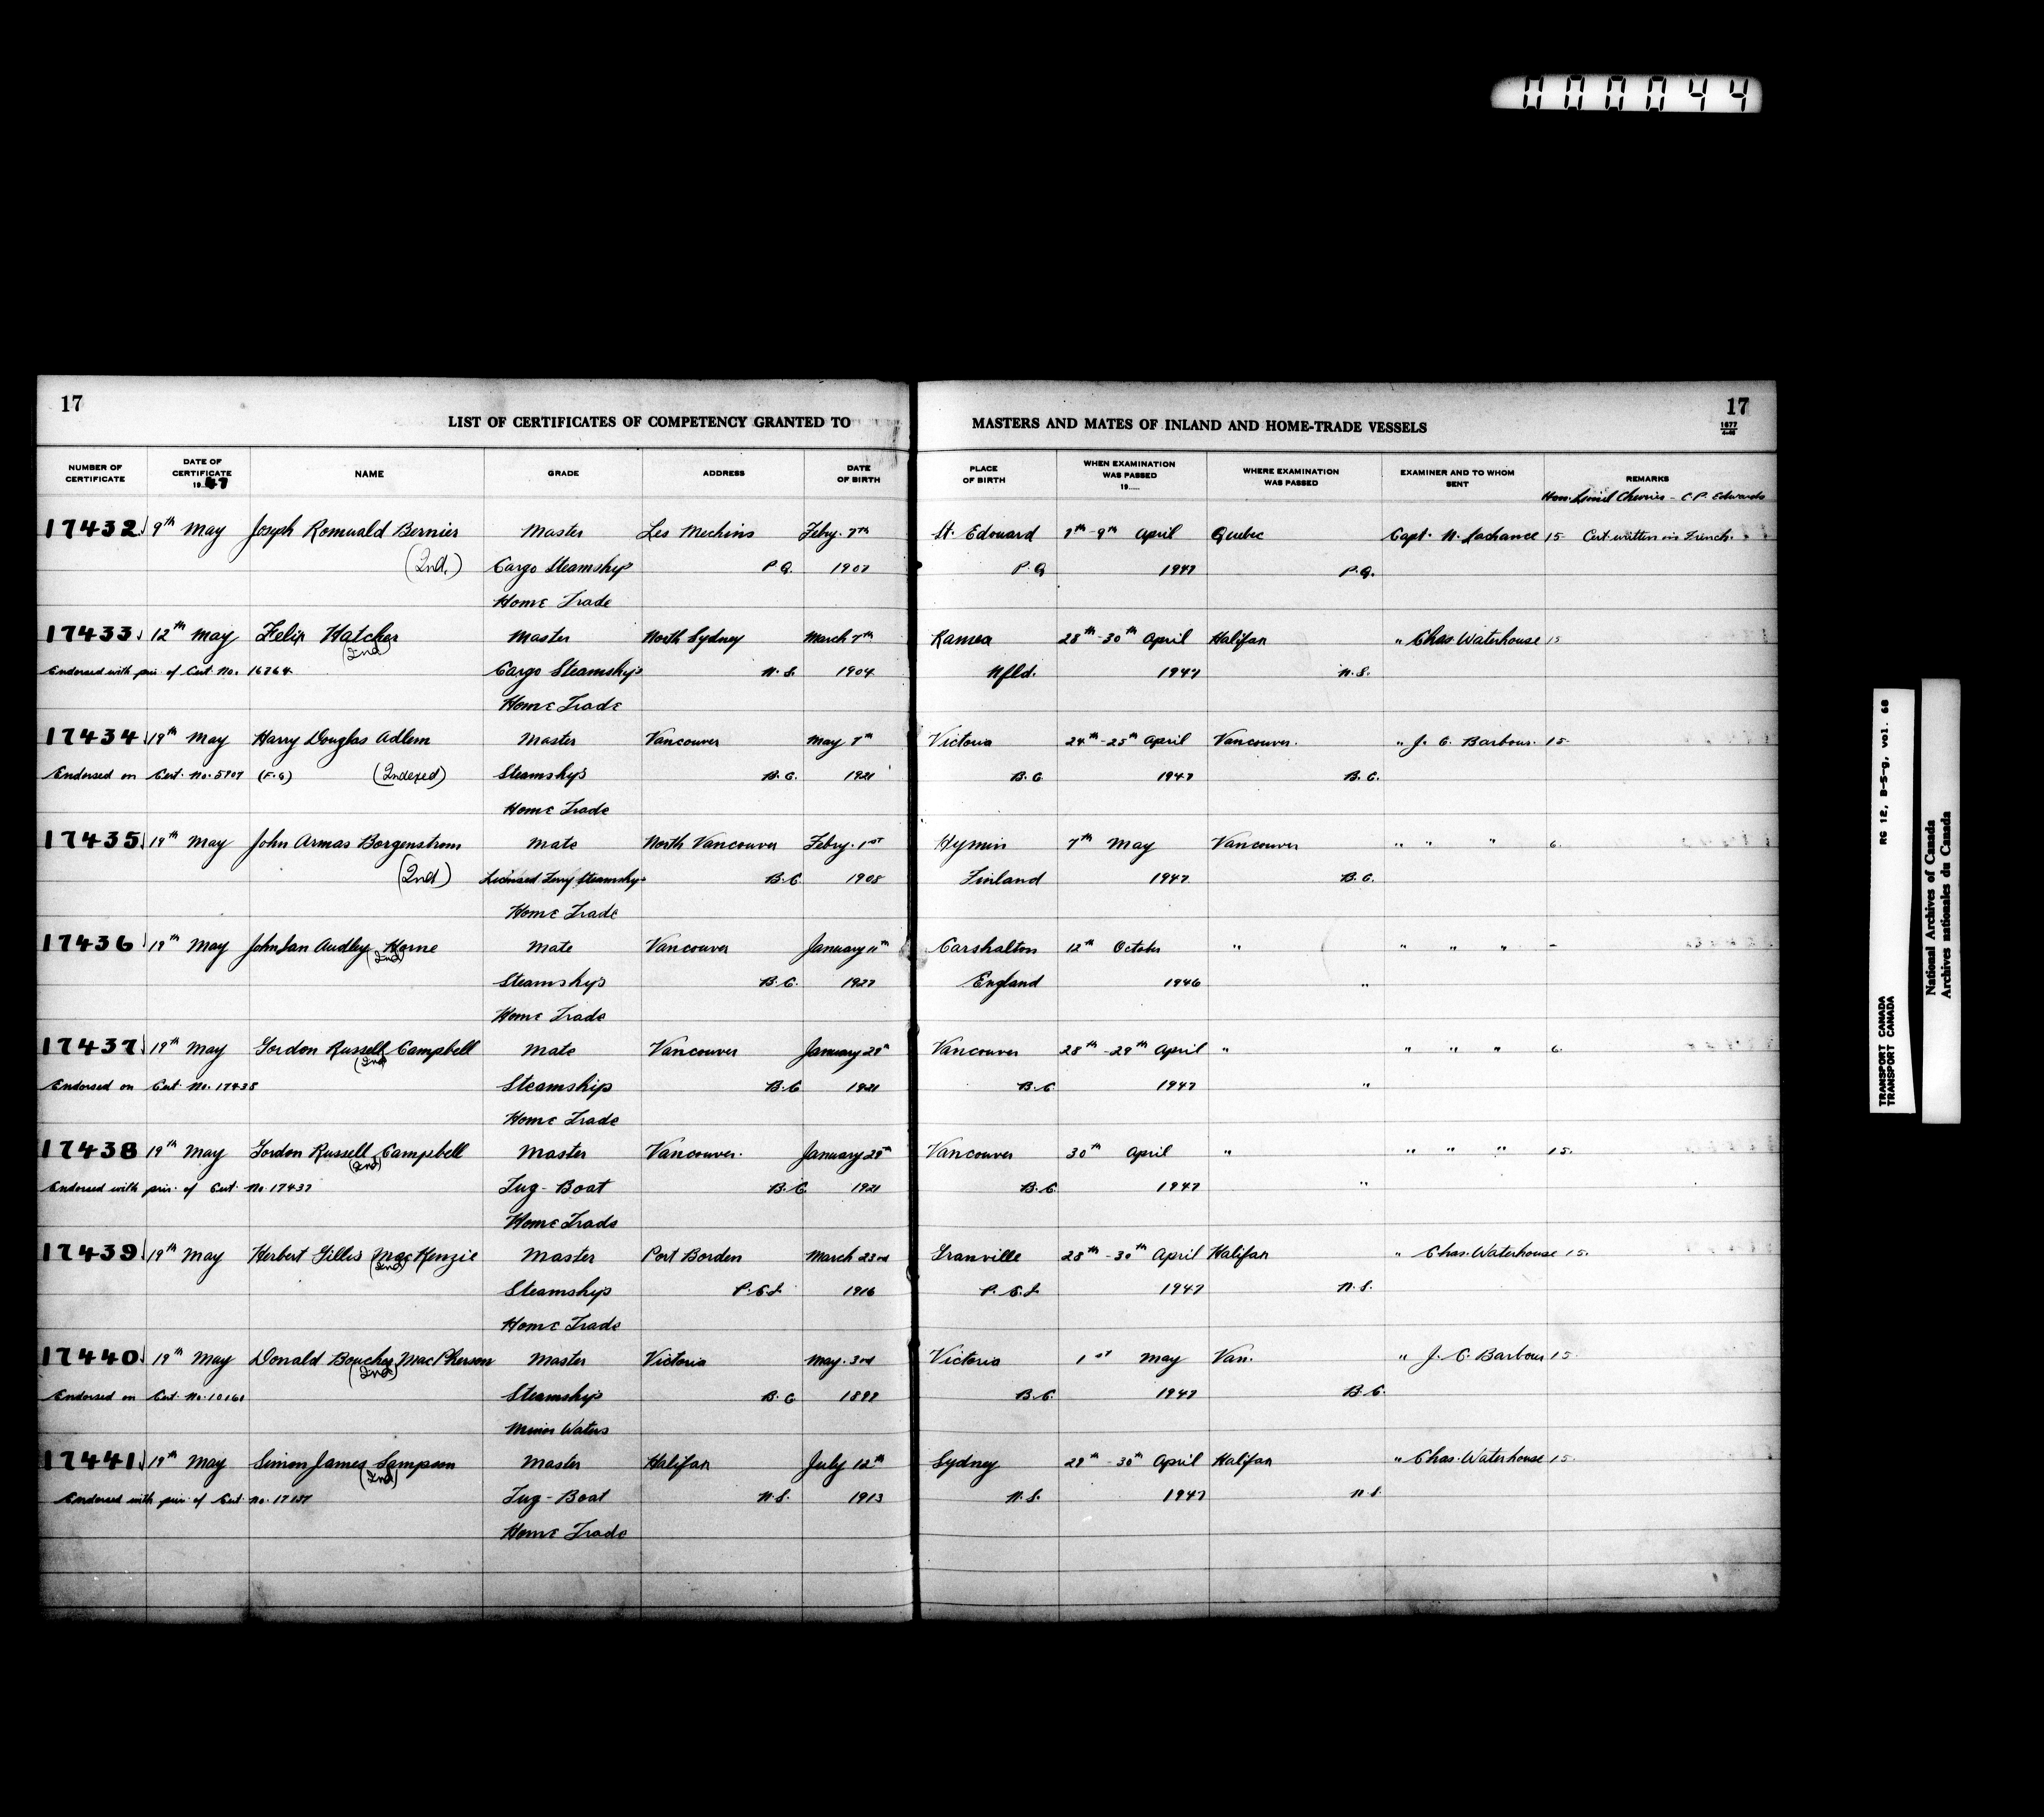 000044
17
LIST OF CERTIFICATES OF COMPETENCY GRANTED TO
MASTERS AND MATES OF INLAND AND HOME-TRADE VESSELS
17
NUMBER OF CERTIFICATE
DATE OF CERTIFICATE 1947
NAME
GRADE
ADDRESS
DATE OF BIRTH
PLACE OF BIRTH
WHEN EXAMINATION WAS PASSED 19
WHERE EXAMINATION WAS PASSED
EXAMINER AND TO WHOM SENT
REMARKS
Hon. Lionel Chevrier - C.P. Edwards
17432 9th May Joseph Romuald Bernier Master Les Mechins Feby. 7th St. Edouard 7th-9th April Quebec Capt. N. Lachance 15 Cert. written in French.
(Ind.) Cargo Steamship P.Q. 1907 P.Q 1947 P.Q.
Home Trade
17433 12th May Felix Hatcher Master North Sydney March 7th Ramea 28th-30th April Halifax " Chas. Waterhouse 15
(Ind)
Endorsed with priv. of Cert. No. 16764 Cargo Steamships N.S. 1904 Nfld. 1947 N.S.
Home Trade
17434 19th May Harry Douglas Adlem Master Vancouver May 7th Victoria 24th-25th April Vancouver. " J. C. Barbour. 15
Endorsed on Cert. No. 5707 (F.G) (Indexed) Steamships B.C. 1921 B.C 1947 B.C.
Home Trade
17435 19th May John Armas Borgenstrom Mate North Vancouver Feby. 1st Kymin 7th May Vancouver " " " 6
(Ind) Licensed Ferry Steamship B.C. 1905 Finland 1947 B.C.
Home Trade
17436 19th May John Ian Audley Horne Mate Vancouver January 11th Carshalton 12th October " " " " -
(Ind)
Steamships B.C. 1927 England 1946 "
Home Trade
17437 19th May Gordon Russell Campbell Mate Vancouver January 29th Vancouver 28th-29th April " " " " 6
(Ind)
Endorsed on Cert. No. 17438 Steamship B.C 1921 B.C 1947 "
Home Trade
17438 19th May Gordon Russell Campbell Master Vancouver. January 29th Vancouver 30th April " " " " 15.
(Ind)
Endorsed with priv. of Cert. No. 17437 Tug-Boat B.C 1921 B.C. 1947 "
Home Trade
17439 19th May Herbert Gillis MacKenzie Master Port Borden March 23rd Granville 28th-30th April Halifax " Chas. Waterhouse 15.
(Ind)
Steamships P.E.I. 1916 P.E.I. 1947 N.S.
Home Trade
17440 19th May Donald Boucher MacPherson Master Victoria May. 3rd Victoria 1st May Van. " J. C. Barbour 15
(Ind)
Endorsed on Cert. No. 10161 Steamships B.C 1899 B.C. 1947 B.C.
Minor Waters
17441 19th May Simon James Sampson Master Halifax July 12th Sydney 29th-30th April Halifax " Chas. Waterhouse 15
(Ind)
Endorsed with priv. of Cert. No. 17137 Tug-Boat N.S. 1913 N.S. 1947 N.S.
Home Trade
RG 12, B-5-g, vol. 68
TRANSPORT CANADA
TRANSPORT CANADA
National Archives of Canada
Archives nationales du Canada